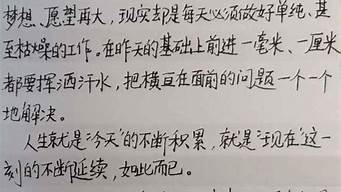 梦想、愿望再大，现实却是每天必须做好单纯、甚
至枯燥的工作。在昨天的基础上前进一毫米、一厘米
都要挥洒汗水，把横亘在面前的问题一个一个
地解决。
人生就是“今天”的不断积累，就是“现在”这一
刻的不断延续，如此而已。